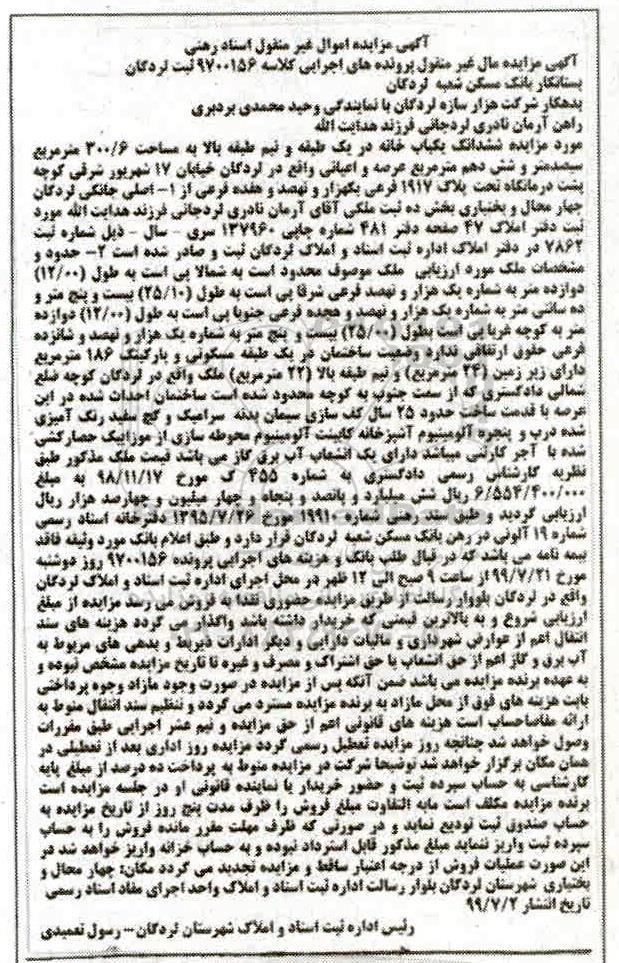 آگهی مزایده اموال غیر منقول اسناد رهنی
آگهی مزایده مال غیر منقول پرونده های اجرایی کلاسه ۹۷۰۰۱۵۶ ثبت لردگان
بستانکار بانک مسکن شعبه لردگان
بدهکار شرکت هزار سازه لردگان با نمایندگی وحید محمدی بردبری
راهن آرمان نادری لردجانی فرزند هدایت الله
مورد مزایده ششدانگ یکباب خانه در یک طبقه و نیم طبقه بالا به مساحت ۳۰۰/۶ مترمربع
سیصدمتر و شش دهم مترمربع عرصه و اعیانی واقع در لردگان خیابان ۱۷ شهریور شرقی کوچه
پشت درمانگاه تحت پلاک ۱۹۱۷ فرعی یکهزار و نهصد و هفده فرعی از ۱- اصلی جانکی لردگان
چهار محال و بختیاری بخش ده ثبت ملکی آقای آرمان نادری لردجانی فرزند هدایت الله مورد
ثبت دفتر املاک ۴۷ صفحه دفتر ۴۸۱ شماره چاپی ۱۳۷۹۶۰ سری - سال - ذیل شماره ثبت
۷۸۶۲ در دفتر املاک اداره ثبت اسناد و املاک لردگان ثبت و صادر شده است ۲- حدود و
مشخصات ملک مورد ارزیابی ملک موصوف محدود است به شمالا پی است به طول (۱۲/۰۰)
دوازده متر به شماره یک هزار و نهصد فرعی شرقا پی است به طول (۲۵/۱۰) بیست و پنج متر و
ده سانتی متر به شماره یک هزار و نهصد و هجده فرعی جنوبا پی است به طول (۱۲/۰۰) دوازده
متر به کوچه غربا پی است بطول (۲۵/۰۰) بیست و پنج متر به شماره یک هزار و نهصد و شانزده
فرعی حقوق ارتفاقی ندارد وضعیت ساختمان در یک طبقه مسکونی و پارکینگ ۱۸۶ مترمربع
دارای زیر زمین (۲۴ مترمربع) و نیم طبقه بالا (۲۲ مترمربع) ملک واقع در لردگان کوچه ضلع
شمالی دادگستری که از سمت جنوب به کوچه محدود شده است ساختمان احداث شده در این
عرصه با قدمت ساخت حدود ۲۵ سال کف سازی سیمان بدنه سرامیک و گچ سفید رنگ آمیزی
شده درب و پنجره آلومینیوم آشپزخانه کابینت آلومینیوم محوطه سازی از موزاییک حصارکشی
شده با آجر کارتنی میباشد دارای یک انشعاب آب برق گاز می باشد قیمت ملک مذکور طبق
نظریه کارشناس رسمی دادگستری به شماره ۴۵۵ ک مورخ ۹۸/۱۱/۱۷ به مبلغ
۶/۵۵۴/۴۰۰/۰۰۰ ریال شش میلیارد و پانصد و پنجاه و چهار میلیون و چهارصد هزار ریال
ارزیابی گردید و طبق سند رهنی شماره ۱۹۹۱۰ مورخ ۱۳۹۵/۷/۲۶ دفترخانه اسناد رسمی
شماره ۱۹ آلونی در رهن بانک مسکن شعبه لردگان قرار دارد و طبق اعلام بانک مورد وثیقه فاقد
بیمه نامه می باشد که در قبال طلب بانک و هزینه های اجرایی پرونده ۹۷۰۰۱۵۶ روز دوشنبه
مورخ ۹۹/۷/۲۱ از ساعت ۹ صبح الی ۱۲ ظهر در محل اجرای اداره ثبت اسناد و املاک لردگان
واقع در لردگان بلووار رسالت از طریق مزایده حضوری نقدا به فروش می رسد مزایده از مبلغ
ارزیابی شروع و به بالاترین قیمتی که خریدار داشته باشد واگذار می گردد هزینه های سند
انتقال اعم از عوارض شهرداری و مالیات دارایی و دیگر ادارات ذیربط و بدهی های مربوط به
آب برق و گاز اعم از حق انشعاب یا حق اشتراک و مصرف و غیره تا تاریخ مزایده مشخص نبوده و
به عهده برنده مزایده می باشد ضمن آنکه پس از مزایده در صورت وجود مازاد وجوه پرداختی
بابت هزینه های فوق از محل مازاد به برنده مزایده مسترد می گردد و تنظیم سند انتقال منوط به
ارائه مفاصاحساب است هزینه های قانونی اعم از حق مزایده و نیم عشر اجرایی طبق مقررات
وصول خواهد شد چنانچه روز مزایده تعطیل رسمی گردد مزایده روز اداری بعد از تعطیلی در
همان مکان برگزار خواهد شد توضیحا شرکت در مزایده منوط به پرداخت ده درصد از مبلغ پایه
کارشناسی به حساب سپرده ثبت و حضور خریدار یا نماینده قانونی او در جلسه مزایده است
برنده مزایده مکلف است مابه التفاوت مبلغ فروش را ظرف مدت پنج روز از تاریخ مزایده به
حساب صندوق ثبت تودیع نماید و در صورتی که ظرف مهلت مقرر مانده فروش را به حساب
سپرده ثبت واریز ننماید مبلغ مذکور قابل استرداد نبوده و به حساب خزانه واریز خواهد شد در
این صورت عملیات فروش از درجه اعتبار ساقط و مزایده تجدید می گردد مکان: چهار محال و
بختیاری شهرستان لردگان بلوار رسالت اداره ثبت اسناد و املاک واحد اجرای مفاد اسناد رسمی
تاریخ انتشار ۹۹/۷/۲
رئیس اداره ثبت اسناد و املاک شهرستان لردگان --- رسول نعمیدی